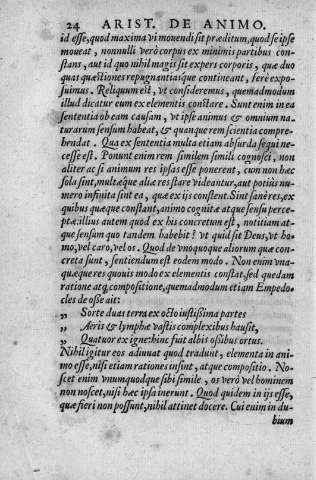 24 ARIST. DE ANIMO.
id esse, quod maxima vi mouendi sit præditum, quod se ipse
moueat, nonnulli verò corpus ex minimis partibus con-
stans, aut id quo nihil magis sit expers corporis, quæ duo
quas quæstiones repugnantiasque contineant, ferè expo-
suimus. Reliquum est, vt consideremus, quemadmodum
illud dicatur eum ex elementis constare. Sunt enim in ea
sententia ob eam causam, vt ipse animus & omnium na-
turarum sensum habeat, & quanque rem scientia compre-
hendat. Qua ex sententia multa etiam absurda sequi ne-
cesse est. Ponunt enim rem similem simili cognosci, non
aliter ac si animum res ipsas esse ponerent, cum non hæc
sola sint, multæque aliæ res stare videantur, aut potiùs nu-
mero infinita sint ea, quæ ex ijs constent. Sint sanè res, ex
quibus quæque constant, animo cognitæ atque sensu perce-
ptæ: illius autem quod ex his concretum est, notitiam at-
que sensum quo tandem habebit? vt quid sit Deus, vt ho-
mo, vel caro, vel os. Quod de vnoquoque aliorum quæ con-
creta sunt, sentiendum est eodem modo. Non enim vna-
quæque res quouis modo ex elementis constat, sed quadam
ratione atque compositione, quemadmodum etiam Empedo-
cles de osse ait:
„ Sorte duas terra ex octo iustissima partes
„ Aeris & lymphæ vastis complexibus hausit,
„ Quatuor ex igne: hinc fuit albis ossibus ortus.
Nihil igitur eos adiuuat quod tradunt, elementa in ani-
mo esse, nisi etiam rationes insint, atque compositio. No-
scet enim vnumquodque sibi simile, os verò vel hominem
non noscet, nisi hæc ipsa inerunt. Quod quidem in ijs esse,
quæ fieri non possunt, nihil attinet docere. Cui enim in du-
bium